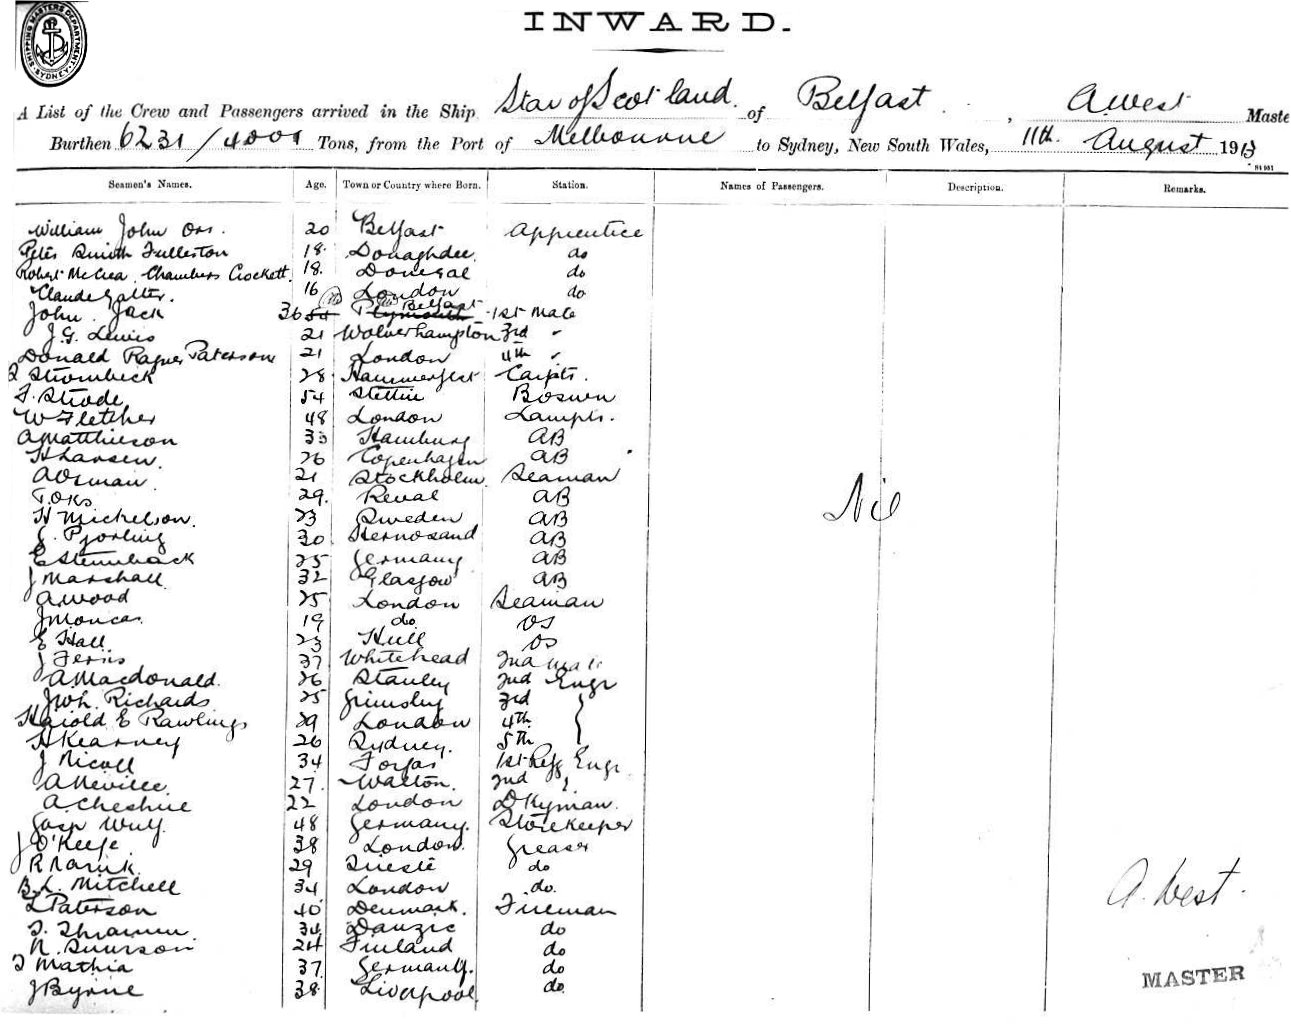 SHIPPING MASTER'S DEPARTMENT. SYDNEY
INWARD.
A List of the Crew and Passengers arrived in the Ship Star of Scotland. of Belfast, A West Maste
Burthen 6231/4001 Tons, from the Port of Melbourne to Sydney, New South Wales, 11th. August 1913
Seamen's Names. Age. Town or Country where Born. Station. Names of Passengers. Description. Remarks.
William John Orr. 20 Belfast Apprentice
Peter Smith Fullerton 18. Donaghdee do
Robert McCrea Chambers Crockett 18. Donegal do
Claude Salter. 16 London do
John Jack 36 Plymouth Belfast 1st Mate
J.G. Lewis 21 Wolverhampton 3rd "
Donald Paterson 21 London 4th "
Strombeck 28 Hammerfest Carptr.
F. Strode 54 Stettin Bosun
W Fletcher 48 London Lamptr.
A Matthieson 33 Hamburg AB
H Larsen. 26 Copenhagen AB
A Osman 21 Stockholm Seaman
T. Oks 29. Reval AB
H Mickelson. 23 Sweden AB
J. Pjorling 30 Hernosand AB
E Stennback 25 Germany AB
J Marshall 32 Glasgow AB
A. Wood 25 London Seaman
J Moncar 19 do OS
E Hall 23 Hull OS
J Ferris 37 Whitehead 2nd Mate
A. Macdonald. 26 Stanley 2nd Engr
J Wh. Richards 25 Grimsby 3rd
Harold E Rawlings 29 London 4th
H Kearney 26 Sydney. 5th
J Nicoll 34 Forfar 1st Refg Engr
A Neville. 27. Walton. 2nd
A. Cheshire 22 London Dkyman.
Wulf. 48 Germany. Storekeeper
J O'Keefe. 38 London. Greaser
R 29 Trieste do
B.L. Mitchell 34 London do.
L Paterson 40 Denmark. Fireman
34 Danzic do
N. 24 Finland do
Mathia 37 Germany. do
J Byrne 38 Liverpool. do
Nil
A. West.
MASTER